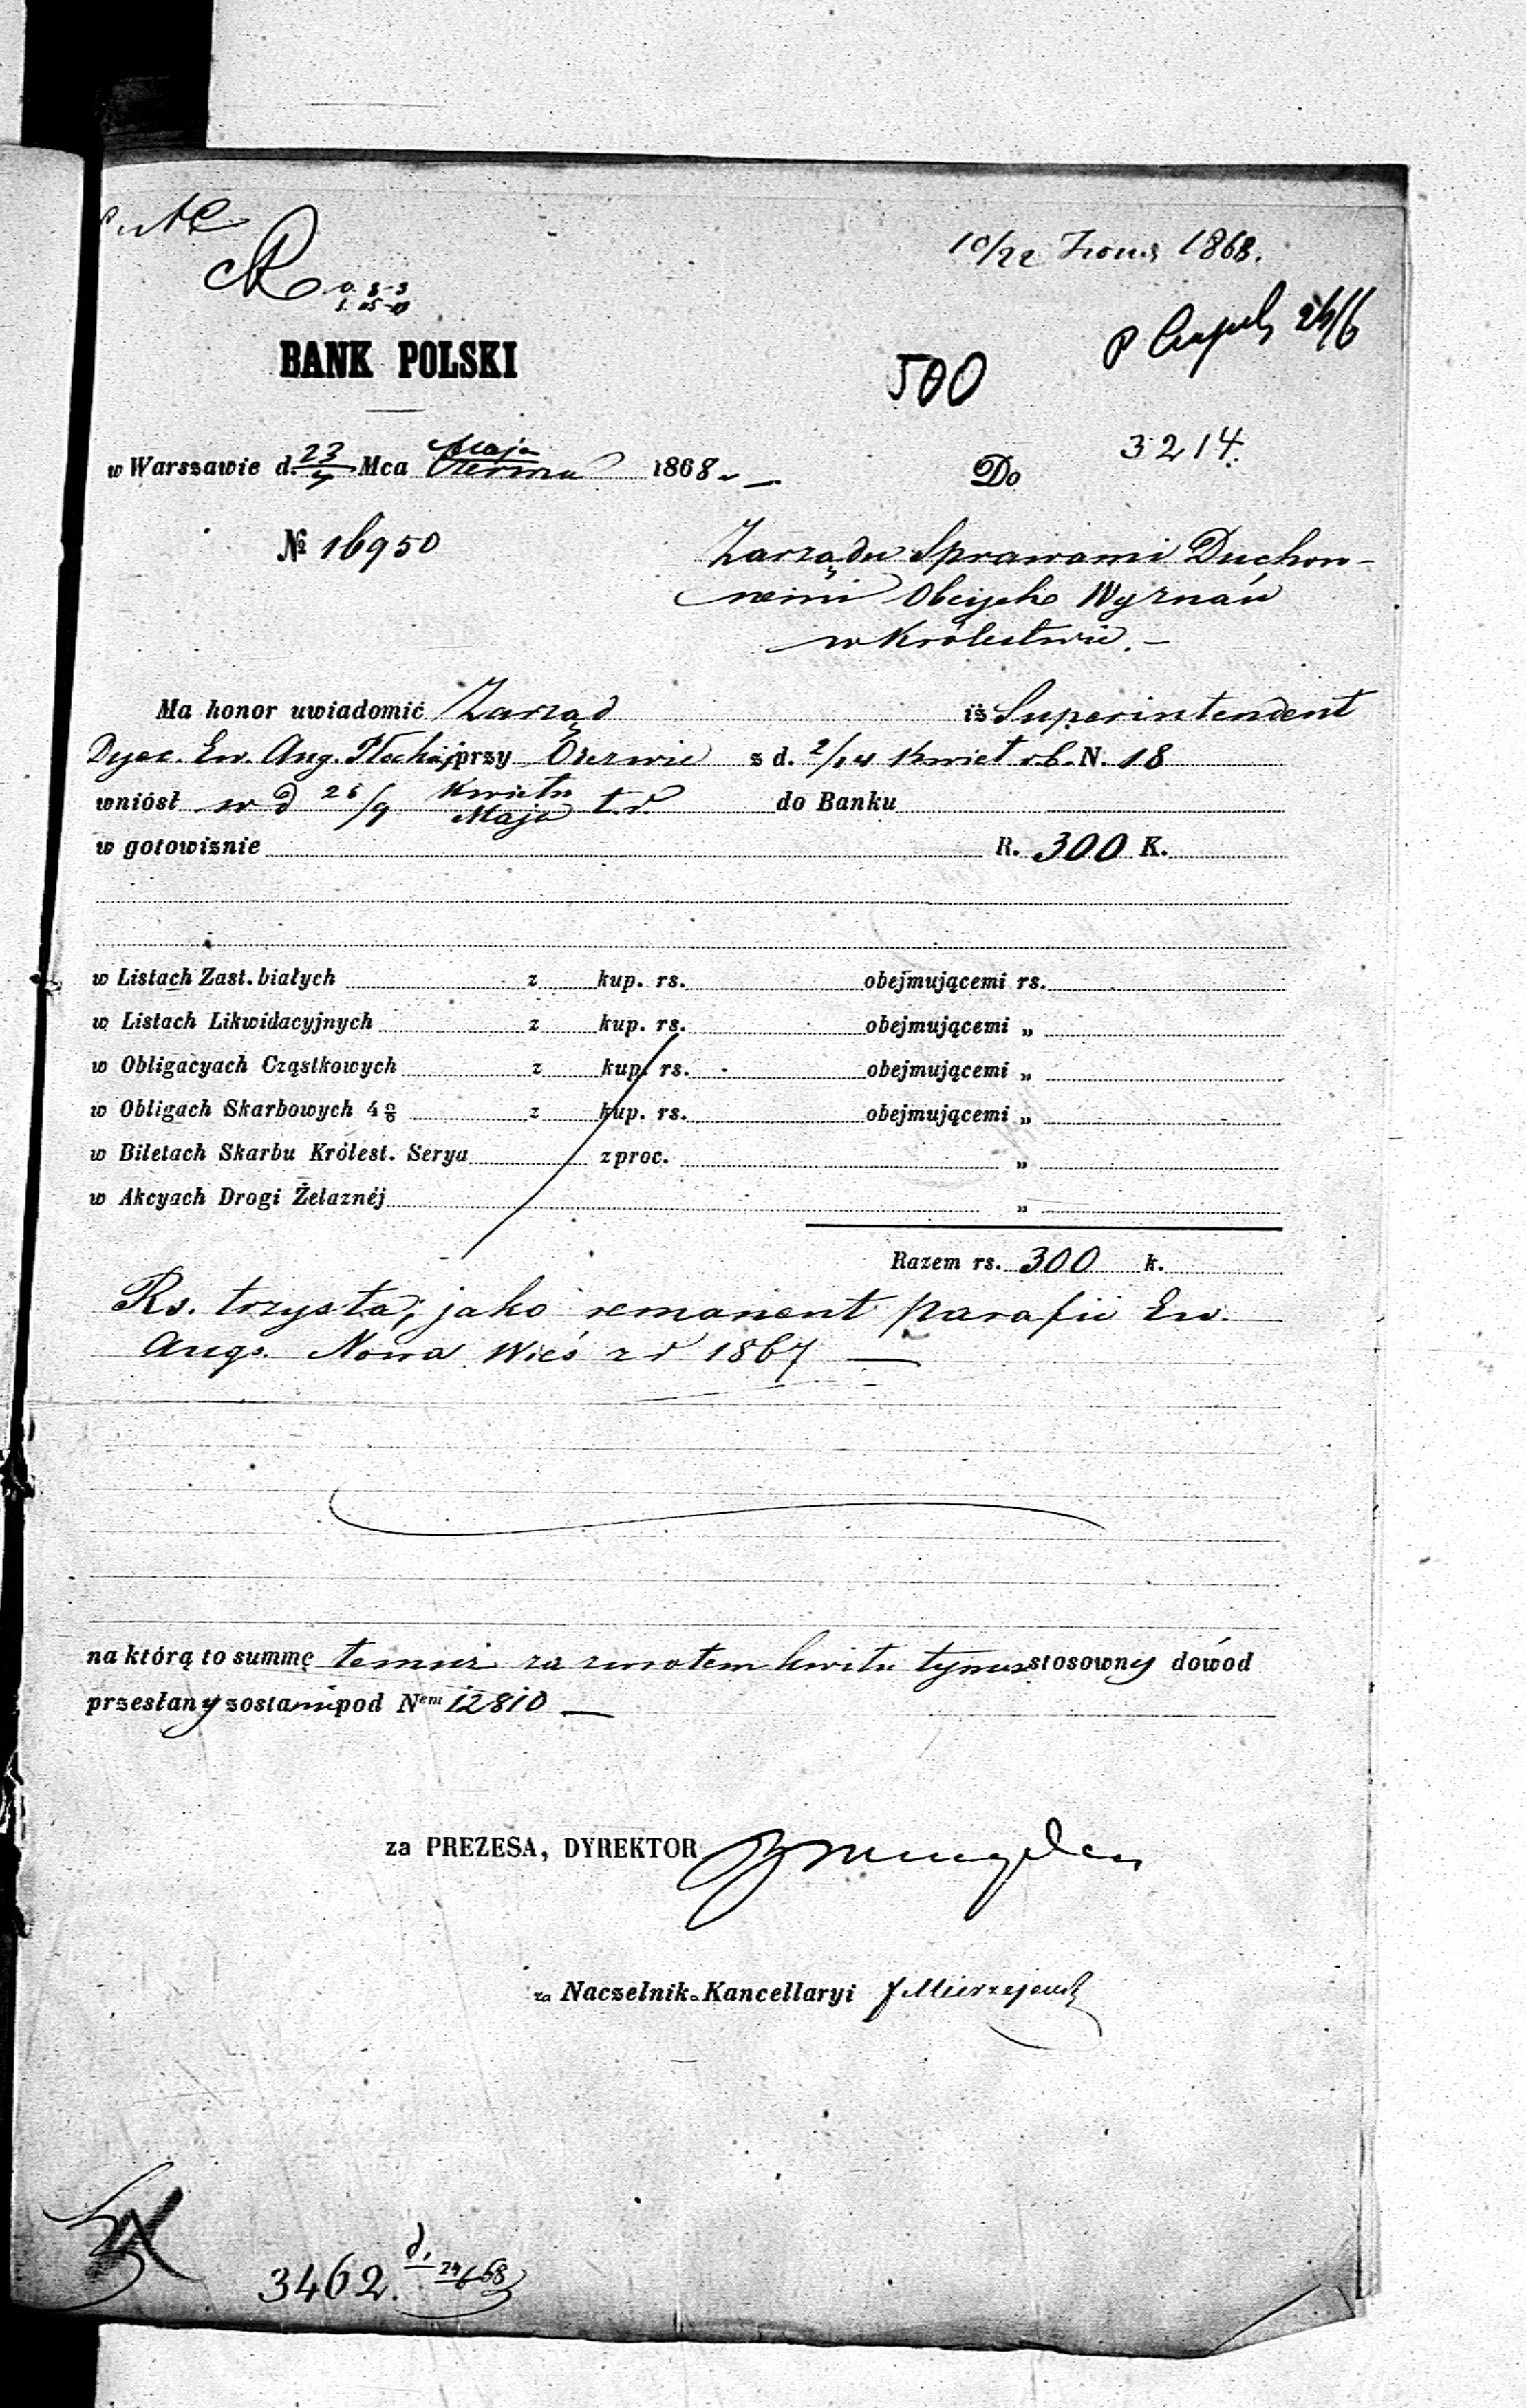 10/22 Іюня 1868.
26/6
500
BANK POLSKI
3214.
w Warszawie d. 23/4 Mca Maja/Czerwca 1868
Do
№ 16950
Zarządu Sprawami Duchow-
nemi Obcych Wyznań
w Królestwie. –
Ma honor uwiadomić Zarząd iż Superintendent
Dyec. Ew. Aug. Płockiej przy Odezwie z d. 2/14 Kwiet rb. N. 18
wniósł w d 26/9 Kwietn/Maja t.r. do Banku
w gotowiznie R. 300 K.
w Listach Zast. białych z kup. rs. obejmującemi rs.
w Listach Likwidacyjnych z kup. rs. obejmującemi „
w Obligacyach Cząstkowych z kup. rs. obejmującemi „
w Obligach Skarbowych 4% z kup. rs. obejmującemi „
w Biletach Skarbu Królest. Serya z proc. „
w Akcyach Drogi Żelaznéj „
Razem rs. 300 k.
Rs. trzysta, jako remanent parafii Ew.
Augs. Nowa Wieś z r 1867 —
na którą to summę temuż za zwrotem kwitu tymcz stosowny dówod
przesłany zostanie pod Nem 12810 —
za PREZESA, DYREKTOR
za Naczelnik Kancellaryi J Mierzejewsk
3462. d. 24/6 68